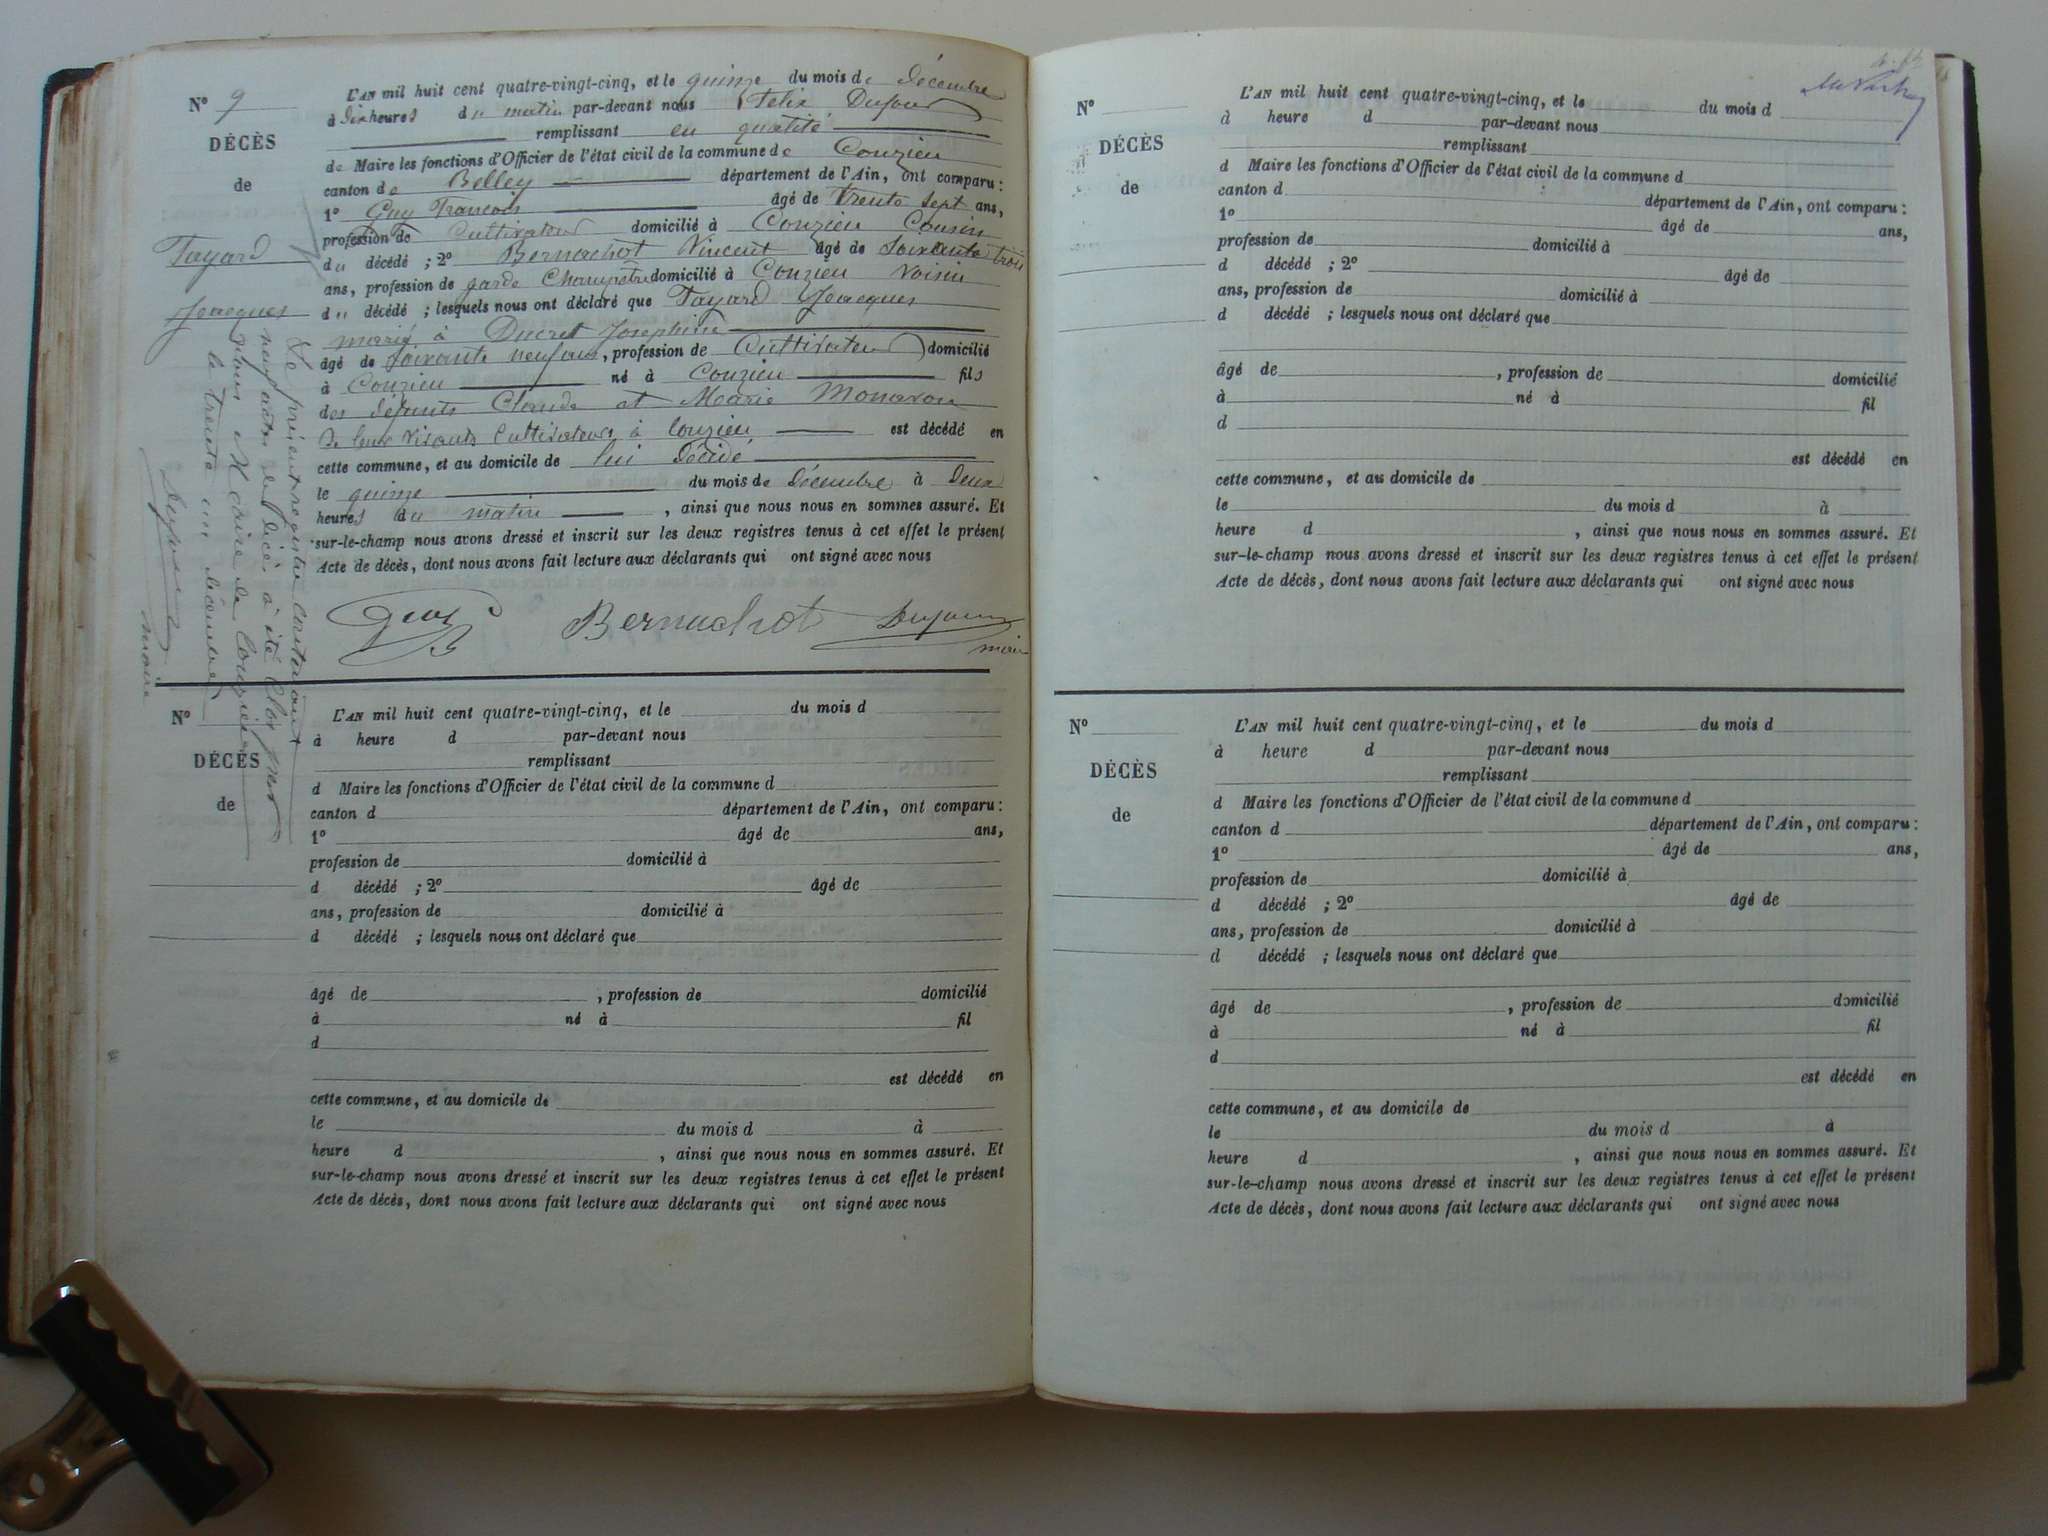 N° 9
DÉCÈS
de
Tayard
Jacques
L'AN mil huit cent quatre-vingt-cinq, et le quinze du mois de Décembre
à Dix heures du matin par-devant nous Felix Dufour
remplissant en qualité
de Maire les fonctions d'Officier de l'état civil de la commune de Conzieu
canton de Belley département de l'Ain, ont comparu :
1° Guy Francois âgé de Trente Sept ans,
profession de Cultivateur domicilié à Conzieu Cousin
du décédé ; 2° Bernachot Vincent âgé de Soixante trois
ans, profession de garde Champetre domicilié à Conzieu Voisin
du décédé ; lesquels nous ont déclaré que Tayard Jacques
marié à Ducret Josephine
âgé de Soixante neuf ans, profession de Cultivateur domicilié
à Conzieu né à Conzieu fils
des défunts Claude et Marie Monavon
De leur Vivants Cultivateurs à Conzieu est décédé en
cette commune, et au domicile de lui Décédé
le quinze du mois de Décembre à Deux
heures du matin , ainsi que nous nous en sommes assuré. Et
sur-le-champ nous avons dressé et inscrit sur les deux registres tenus à cet effet le présent
Acte de décès, dont nous avons fait lecture aux déclarants qui ont signé avec nous
Bernachot Dufour
maire
Le présent registre contenant
neuf actes de Décé à été Clos par
Nous Maire de Conzieu
le trente un décembre
Dufour
maire
N°
DÉCÈS
de
L'AN mil huit cent quatre-vingt-cinq, et le du mois d
à heure d par-devant nous
remplissant
d Maire les fonctions d'Officier de l'état civil de la commune d
canton d département de l'Ain, ont comparu :
1° âgé de ans,
profession de domicilié à
d décédé ; 2° âgé de
ans, profession de domicilié à
d décédé ; lesquels nous ont déclaré que
âgé de , profession de domicilié
à né à fil
d
est décédé en
cette commune, et au domicile de
le du mois d à
heure d , ainsi que nous nous en sommes assuré. Et
sur-le-champ nous avons dressé et inscrit sur les deux registres tenus à cet effet le présent
Acte de décès, dont nous avons fait lecture aux déclarants qui ont signé avec nous
N°
DÉCÈS
de
L'AN mil huit cent quatre-vingt-cinq, et le du mois d
à heure d par-devant nous
remplissant
d Maire les fonctions d'Officier de l'état civil de la commune d
canton d département de l'Ain, ont comparu :
1° âgé de ans,
profession de domicilié à
d décédé ; 2° âgé de
ans, profession de domicilié à
d décédé ; lesquels nous ont déclaré que
âgé de , profession de domicilié
à né à fil
d
est décédé en
cette commune, et au domicile de
le du mois d à
heure d , ainsi que nous nous en sommes assuré. Et
sur-le-champ nous avons dressé et inscrit sur les deux registres tenus à cet effet le présent
Acte de décès, dont nous avons fait lecture aux déclarants qui ont signé avec nous
N°
DÉCÈS
de
L'AN mil huit cent quatre-vingt-cinq, et le du mois d
à heure d par-devant nous
remplissant
d Maire les fonctions d'Officier de l'état civil de la commune d
canton d département de l'Ain, ont comparu :
1° âgé de ans,
profession de domicilié à
d décédé ; 2° âgé de
ans, profession de domicilié à
d décédé ; lesquels nous ont déclaré que
âgé de , profession de domicilié
à né à fil
d
est décédé en
cette commune, et au domicile de
le du mois d à
heure d , ainsi que nous nous en sommes assuré. Et
sur-le-champ nous avons dressé et inscrit sur les deux registres tenus à cet effet le présent
Acte de décès, dont nous avons fait lecture aux déclarants qui ont signé avec nous